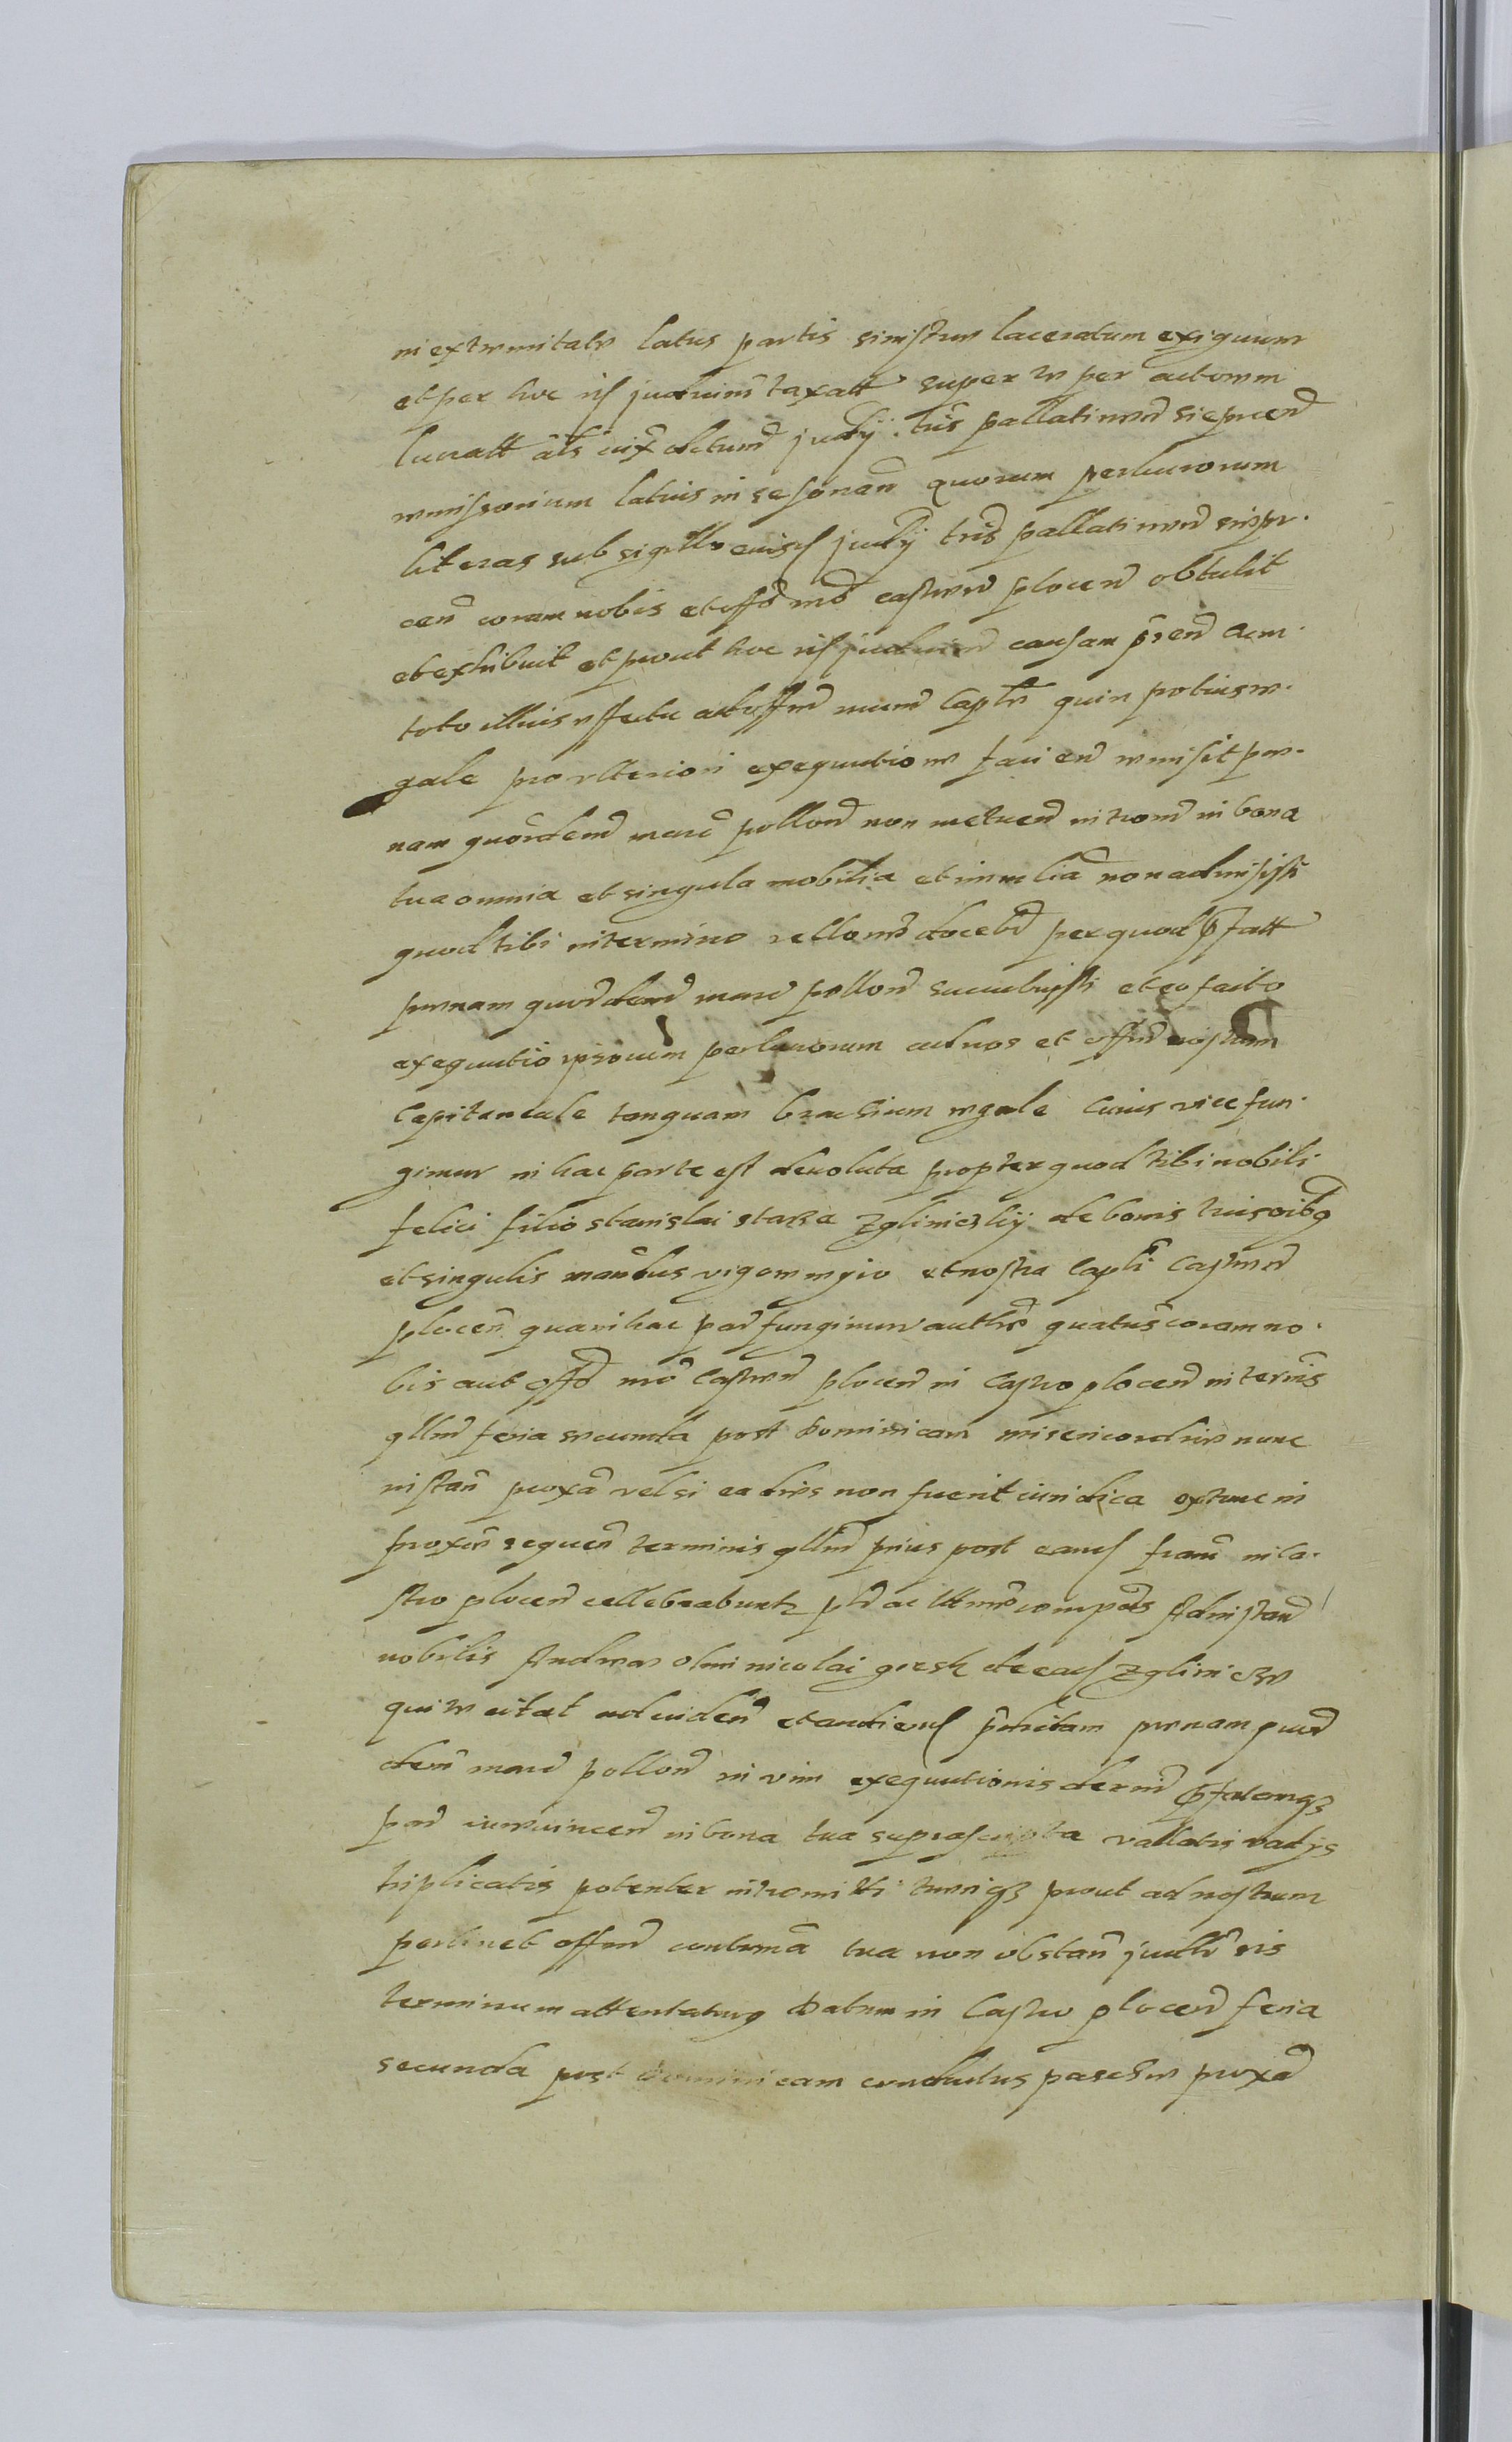 in extremitate latus partis sinistrum laceratum exiguum
et per hoc iꝭ judicium taxatt super re per actorem
lucratt als iuxᷓ dictum̃ judij tris pallatinen̄ sieprcen̄
remissorium latius in se sonan̄ quorum perlucrorum
literas sub sigillo eiusꝭ judij tris pallatinen̄ siepr-
cen̄ coram nobis et offō nrō castren̄ plocen̄ obtulit
et exhibuit et prout hoc iꝭ judicium̄ causam p̄sen̄ cum
toto illius effectu ad offm̄ num̄ Captle quin potius re-
gale pro vlteriori exequutione facien̄ remisit poe-
nam quōrdem̄ marc̄ pollon̄ non metuen̄ introm̄ in bona
tua omnia et singula mobilia et immlia non admisisti
quod tibi in termino rellom̄ docebr̄ per quod p̄fatt
poenam quordem̄ marc̄ pollon̄ succubuisti et eo facto
exequutio ipsorum perlucrorum ad nos et offm̄ nostrum
Capitaneale tanquam brachium regale Cuius vice fun-
gimur in hac parte est deuoluta propter quod tibi nobili
felici filio stanislai starza Zgliniczkij de bonis tuis oibꝯ
et singulis mandamus vigore regio et nostra Captli Castren̄
plocen̄ qua in hac par̄ fungimur authre quatus coram no-
bis aut offō nrō Castren̄ plocen̄ in Castro plocen̄ in termis
qllm̄ feria secunda post dominicam misericordiae nunc
instan̄ proxᷓ vel si ea dies non fuerit iuridica extunc in
proxis̄ sequen̄ terminis qllm̄ prius post eanꝭ fram̄ in Ca-
stro plocen̄ cellebrabuntr p̄tr ac lltimie compeās Ad instan̄
nobilis Andreae olim nicolai gorsk de eadꝭ Zglinicze
qui te citat ad viden̄ et audienꝭ p̄dictam poenam quor̄
dem̄ marc̄ pollon̄ in vim exequutionis debm̄ p̄fatamqꝫ
par̄ iureuincen̄ in bona tua suprascripta vallatis vadijs
triplicatis potenter intromitti turriqꝫ prout ad nostrum
pertinet offm̄ contuma tua non obstan̄ judlr̄ sis
terminum attentaturꝯ Datum in Castro plocen̄ feria
secunda post dominicam conductus paschae proxᷓ